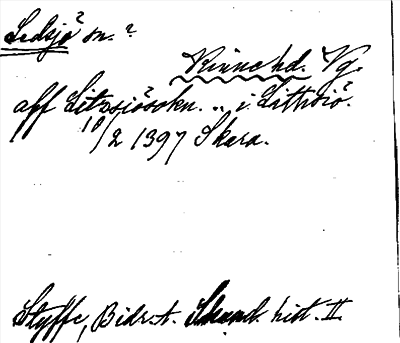 Ledsjö sn. ?
Kinne hd. Vg.
aff Litzsiösokn .. i Litthsiö.
10/2 1397 Skara.
Styffe, Bidr. t. Skand. hist. II.